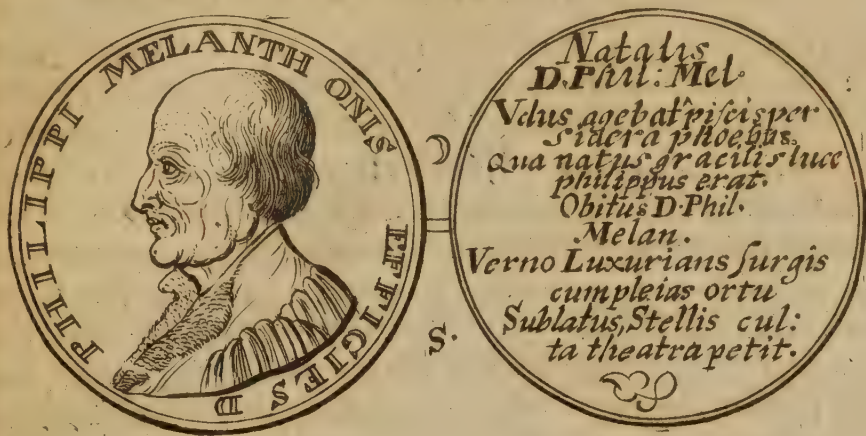 PHILIPPI MELANTHONIS EFFIGIES D
☽
S.
Natalis
D. Phil: Mel.
Vdus agebat' piſcis per
sidera phoebus,
Qua natus gracilis luce
philippus erat.
Obitus D. Phil.
Melan.
Verno Luxurians ſurgis
cum pleias ortu
Sublatus, Stellis cul:
ta theatra petit.